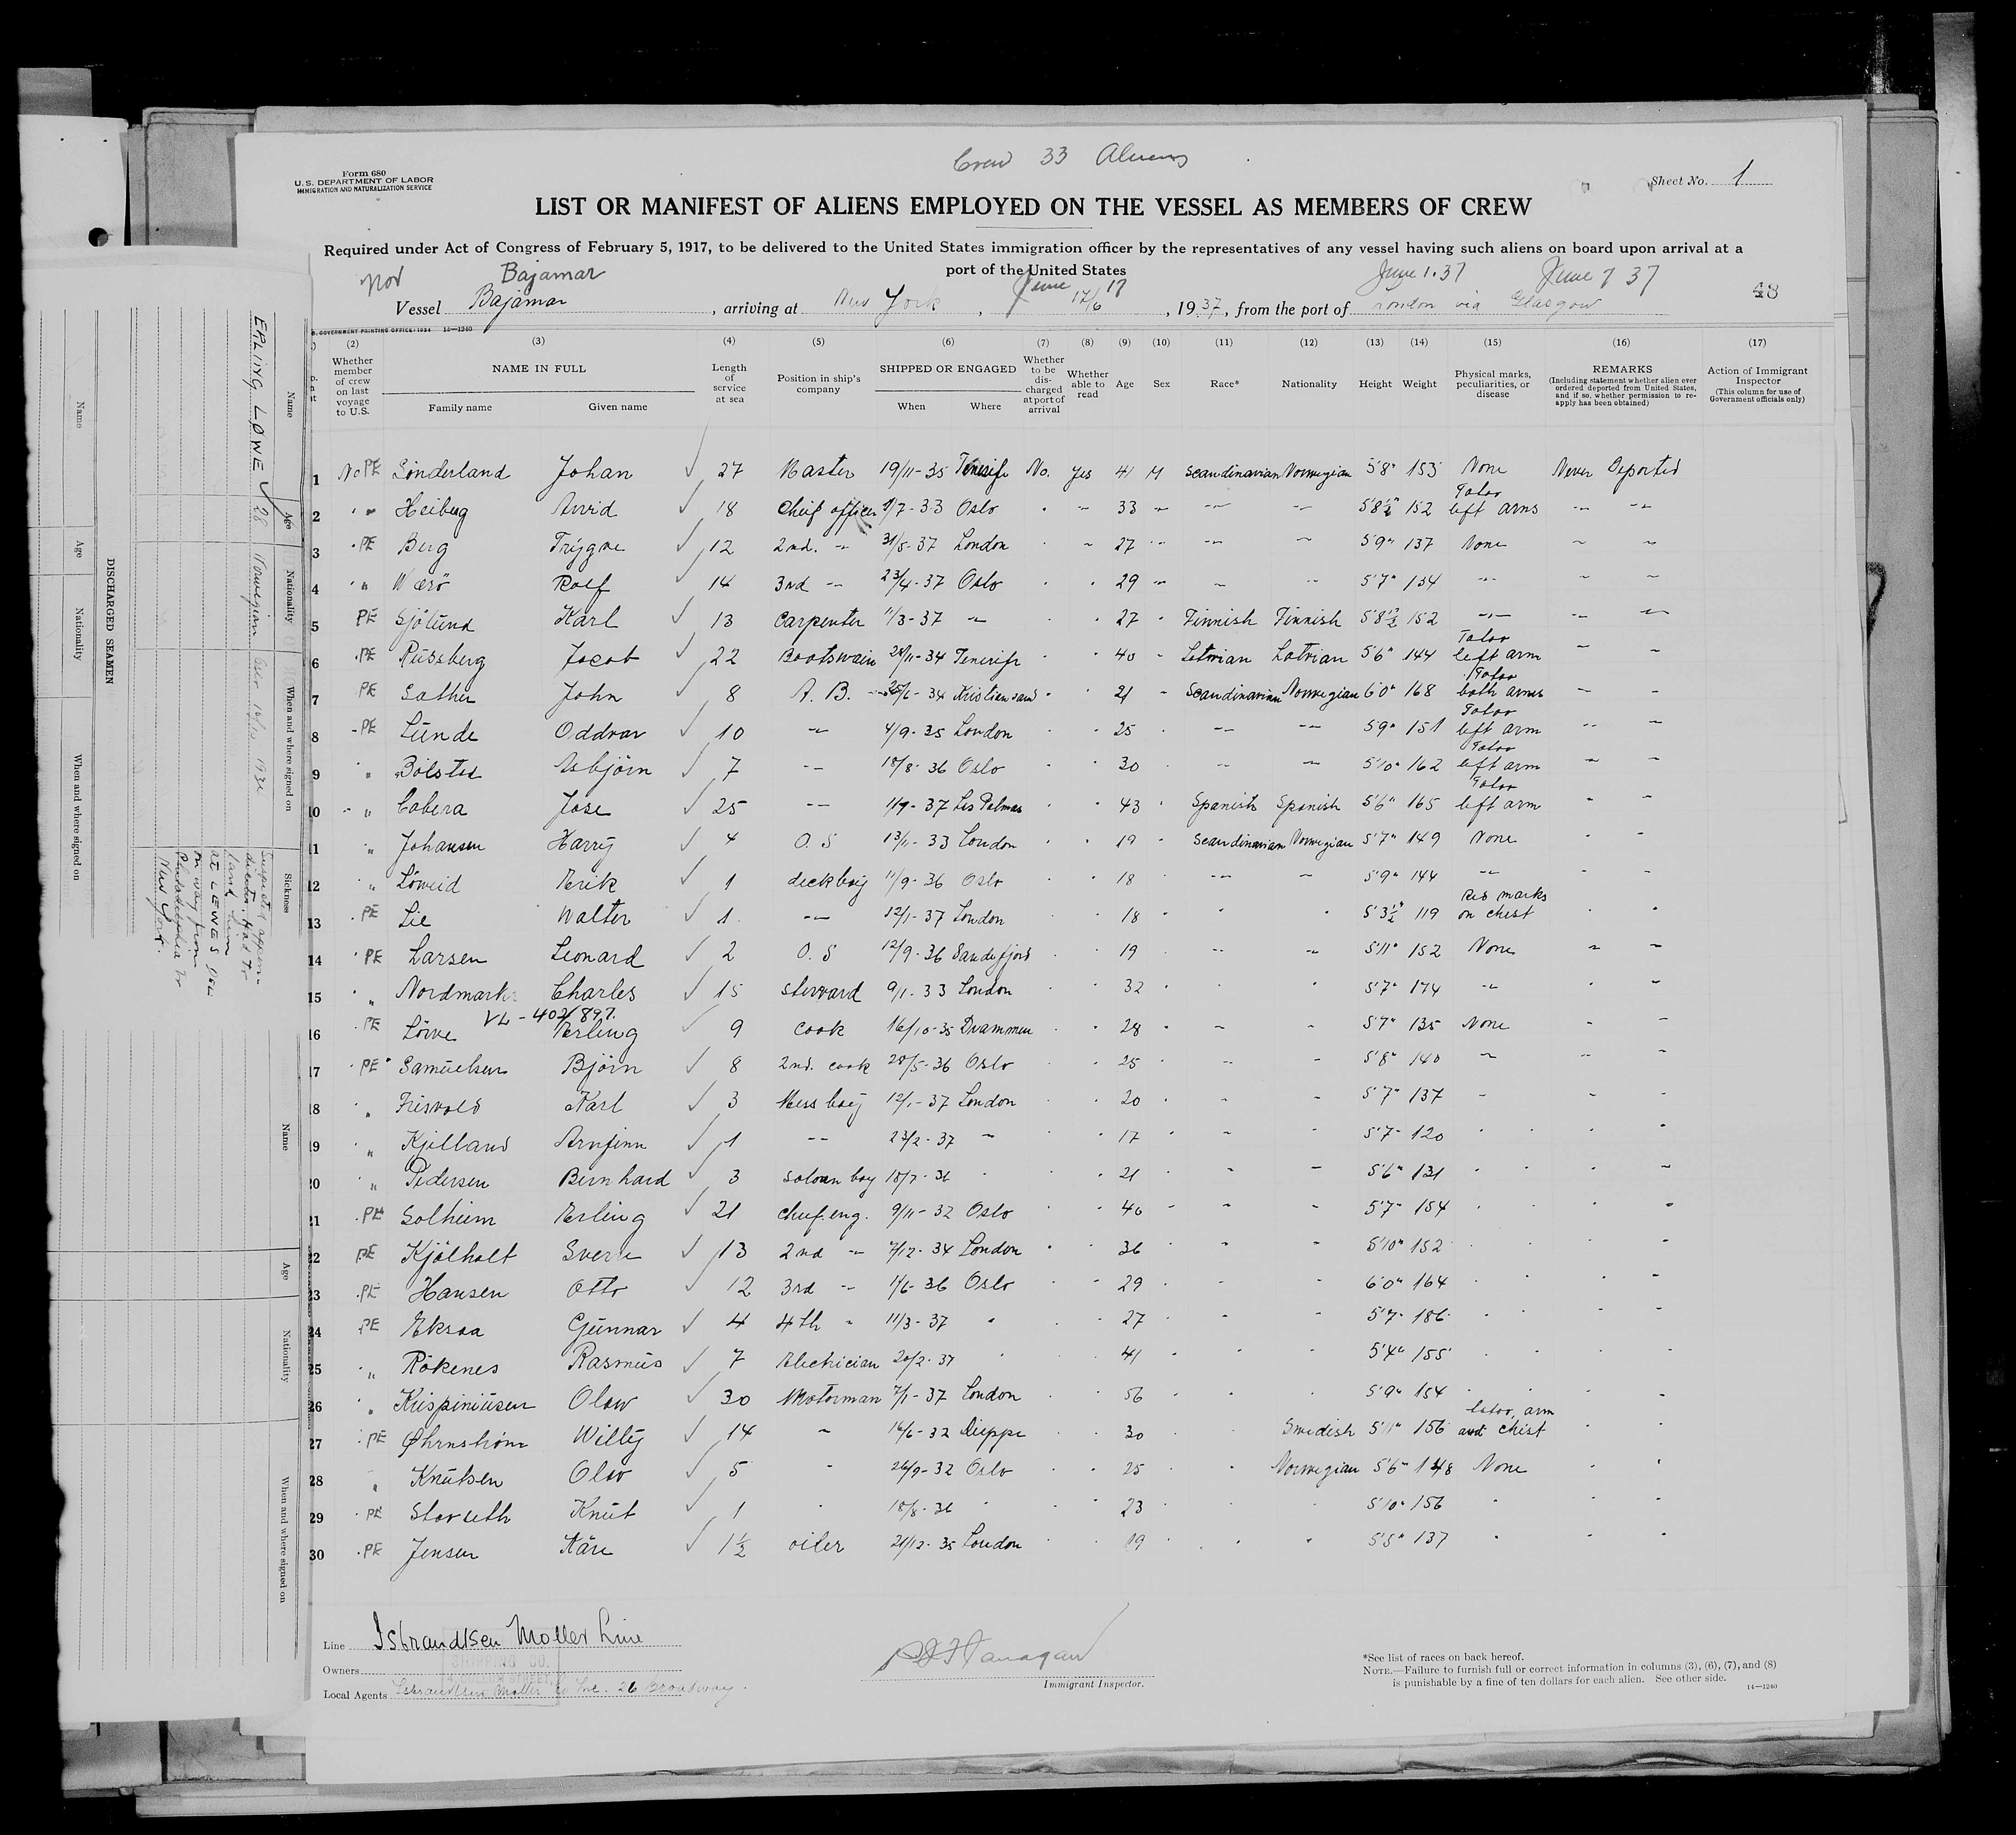 Crew 33 Aliens
Form 680
U. S. DEPARTMENT OF LABOR
IMMIGRATION AND NATURALIZATION SERVICE
Sheet No. 1
LIST OR MANIFEST OF ALIENS EMPLOYED ON THE VESSEL AS MEMBERS OF CREW
Required under Act of Congress of February 5, 1917, to be delivered to the United States immigration officer by the representatives of any vessel having such aliens on board upon arrival at a
port of the United States
Nor Bajamar June 17 June 1.37 June 7 37
Vessel Bajamar, arriving at New York, 17/6, 1937, from the port of London via Glasgow
48
GOVERNMENT PRINTING OFFICE: 1934 14—1240
(2) (3) (4) (5) (6) (7) (8) (9) (10) (11) (12) (13) (14) (15) (16) (17)
Whether member of crew on last voyage to U.S.
NAME IN FULL
Family name Given name
Length of service at sea
Position in ship's company
SHIPPED OR ENGAGED
When Where
Whether to be discharged at port of arrival
Whether able to read
Age
Sex
Race*
Nationality
Height
Weight
Physical marks, peculiarities, or disease
REMARKS
(Including statement whether alien ever ordered deported from United States, and if so, whether permission to reapply has been obtained)
Action of Immigrant Inspector
(This column for use of Government officials only)
1 No PE Sönderland Johan ✓ 27 Master 19/11-35 Tenerife No. Yes 41 M Scandinavian Norwegian 5'8" 153 None Never Deported
2 " " Heiberg Arvid ✓ 18 Chief officer 1/7-33 Oslo - " 33 " " " 5'8½" 152 Tatoo left arms " "
3 PE Berg Trygve ✓ 12 2nd. " 31/5-37 London - " 27 " " " 5'9" 137 None " "
4 " " Werö Rolf ✓ 14 3nd " 23/4-37 Oslo 29 " " " 5'7" 134 " " "
5 PE Sjölund Karl ✓ 13 Carpenter 11/3-37 " 27 " Finnish Finnish 5'8½" 152 " " "
6 PE Püssberg Jacob ✓ 22 Bootswain 28/11-34 Tenerife 40 " Latvian Latvian 5'6" 144 Tatoo left arm " "
7 PE Sather John ✓ 8 A. B. 25/6-34 Kristiansand 21 " Scandinavian Norwegian 6'0" 168 Tatoo both arms " "
8 PE Lunde Oddvar ✓ 10 " 4/9-35 London 25 " " 5'9" 151 Tatoo left arm " "
9 " Bolstad Asbjörn ✓ 7 " 18/8-36 Oslo 30 " " 5'10" 162 Tatoo left arm " "
10 " Cabera Jose ✓ 25 " 1/9-37 Las Palmas 43 Spanish Spanish 5'6" 165 Tatoo left arm " "
11 " Johansen Harry ✓ 4 O. S 13/11-33 London 19 " Scandinavian Norwegian 5'7" 149 None " "
12 " Löveid Erik ✓ 1 deckboy 11/9-36 Oslo 18 " " 5'9" 144 " " "
13 PE Lie Walter ✓ 1 " 12/1-37 London 18 " " 5'3½" 119 Red marks on chest " "
14 PE Larsen Leonard ✓ 2 O. S 12/9-36 Sandefjord 19 " " 5'11" 152 None " "
15 " Nordmark Charles ✓ 15 Steward 9/1-33 London 32 " " 5'7" 174 " " "
VL-402/897.
16 PE Löwe Erling ✓ 9 Cook 16/10-35 Drammen 28 " " 5'7" 135 None " "
17 PE Samuelsen Björn ✓ 8 2nd. cook 20/5-36 Oslo 25 " " 5'8" 140 " " "
18 " Frisvold Karl ✓ 3 Mess boy 12/1-37 London 20 " " 5'7" 137 " " "
19 " Kjelland Arnfinn ✓ 1 " 23/2-37 " 17 " " 5'7" 120 " " "
20 " Pedersen Bernhard ✓ 3 Saloon boy 18/7-36 " 21 " " 5'6" 131 " " "
21 PE Solheim Erling ✓ 21 Chief.eng. 9/11-32 Oslo 40 " " 5'7" 154 " "
22 PE Kjölholt Sverre ✓ 13 2nd " 7/12-34 London 36 " " 5'10" 152 " "
23 PE Hansen Otto ✓ 12 3rd " 1/6-36 Oslo 29 " " 6'0" 164 " "
24 PE Eksaa Gunnar ✓ 4 4th " 11/3-37 " 27 " " 5'7" 186 " "
25 " Rökenes Rasmus ✓ 7 Electrician 20/2-37 " 41 " " 5'4" 155 " "
26 " Krispiniusen Olav ✓ 30 Motorman 7/1-37 London 56 " " 5'9" 154 " "
27 PE Øhrnström Willy ✓ 14 " 16/6-32 Dieppe 30 " Swedish 5'11" 156 tatoo, arm and chest " "
28 " Knutsen Olav ✓ 5 " 26/9-32 Oslo 25 " Norwegian 5'6" 148 None " "
29 PE Storseth Knut ✓ 1 " 18/8-36 " 23 " " 5'10" 156 " "
30 PE Jensen Kåre ✓ 1½ oiler 21/12-35 London 19 " " 5'5" 137 " "
Line Isbrandtsen Moller Line
Owners
SHIPPING CO.
Local Agents Isbrandtsen Moller Co Inc. 26 Broadway.
Flanagan
Immigrant Inspector.
*See list of races on back hereof.
NOTE.—Failure to furnish full or correct information in columns (3), (6), (7), and (8)
is punishable by a fine of ten dollars for each alien. See other side.
14—1240
DISCHARGED SEAMEN
Name Age Nationality When and where signed on Sickness
ERLING LØWE ✓ 28 Norwegian
Suspected appen-
dicitis. Had to
land him
at LEWES Del.
on way from
Philadelphia to
New York.
Name Age Nationality When and where signed on
Name Age Nationality When and where signed on